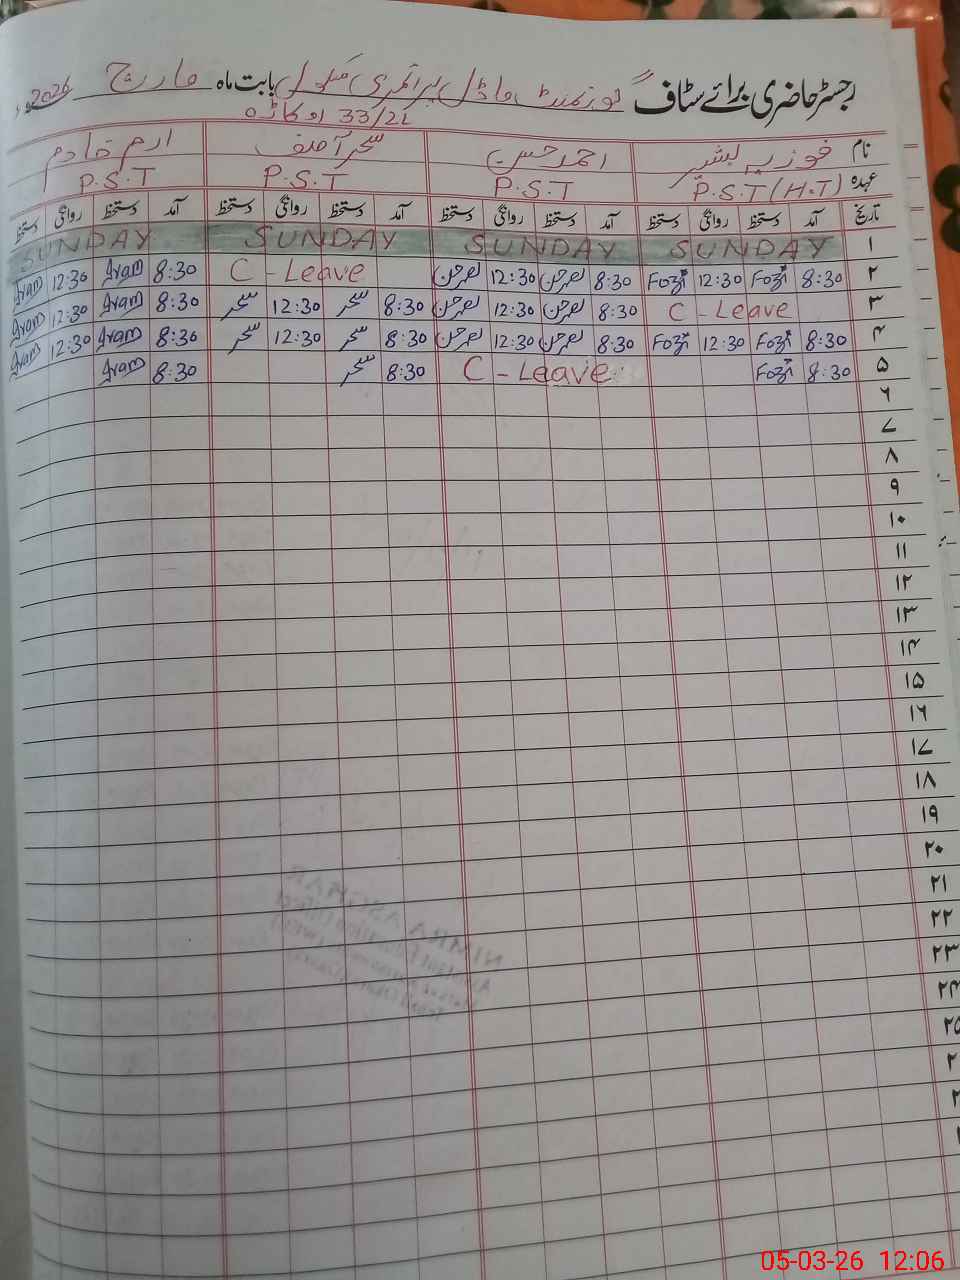 رجسٹر حاضری برائے سٹاف گورنمنٹ ماڈل پرائمری سکول بابت ماہ مارچ 2026
33/2L اوکاڑہ
نام فوزیہ بشیر احمد حسن سحر آصف ارم خادم
عہدہ P.S.T (H.T) P.S.T P.S.T P.S.T
تاریخ آمد دستخط روانگی دستخط آمد دستخط روانگی دستخط آمد دستخط روانگی دستخط آمد دستخط روانگی دستخط
۱ SUNDAY SUNDAY SUNDAY SUNDAY
۲ 8:30 Fozi 12:30 Fozi 8:30 احمد حسن 12:30 احمد حسن C - Leave 8:30 Iram 12:30 Iram
۳ C - Leave 8:30 احمد حسن 12:30 احمد حسن 8:30 سحر 12:30 سحر 8:30 Iram 12:30 Iram
۴ 8:30 Fozi 12:30 Fozi 8:30 احمد حسن 12:30 احمد حسن 8:30 سحر 12:30 سحر 8:30 Iram 12:30 Iram
۵ 8:30 Fozi C - Leave 8:30 سحر 8:30 Iram
۶
۷
۸
۹
۱۰
۱۱
۱۲
۱۳
۱۴
۱۵
۱۶
۱۷
۱۸
۱۹
۲۰
۲۱
۲۲
۲۳
۲۴
۲۵
05-03-26 12:06